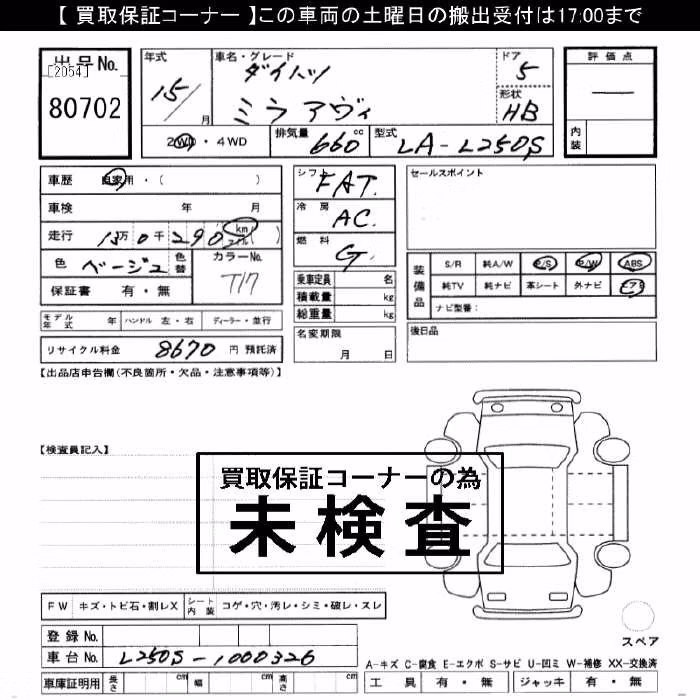 【 買取保証コーナー 】この車両の土曜日の搬出受付は17:00まで
出品No.
[2054]
80702
年式 15/ 月
車名・グレード ダイハツ
ミラアヴィ
ドア 5
形状 HB
評価点
―
内装
2WD・4WD
排気量 660 cc
型式 LA-L250S
車歴 自家用・( )
車検 年 月
走行 13万 0千 290 km マイル( )
色 ベージュ 色替 カラーNo. T17
保証書 有・無
シフト FAT.
冷房 AC.
燃料 G.
乗車定員 名
積載量 kg
総重量 kg
セールスポイント
装備品 S/R 純A/W P/S P/W ABS
純TV 純ナビ 革シート 外ナビ エアB
ナビ型番:
モデル年式 年 ハンドル 左・右 ディーラー・並行
リサイクル料金 8670 円 預託済
名変期限
月 日
後日品
【出品店申告欄(不良箇所・欠品・注意事項等)】
【検査員記入】
買取保証コーナーの為
未検査
FW キズ・トビ石・割レX シート内装 コゲ・穴・汚レ・シミ・破レ・スレ
スペア
登録No.
車台No. L250S-1000326
車庫証明用 長さ cm 幅 cm 高さ cm
A-キズ C-腐食 E-エクボ S-サビ U-凹ミ W-補修 XX-交換済
工具 有・無 ジャッキ 有・無